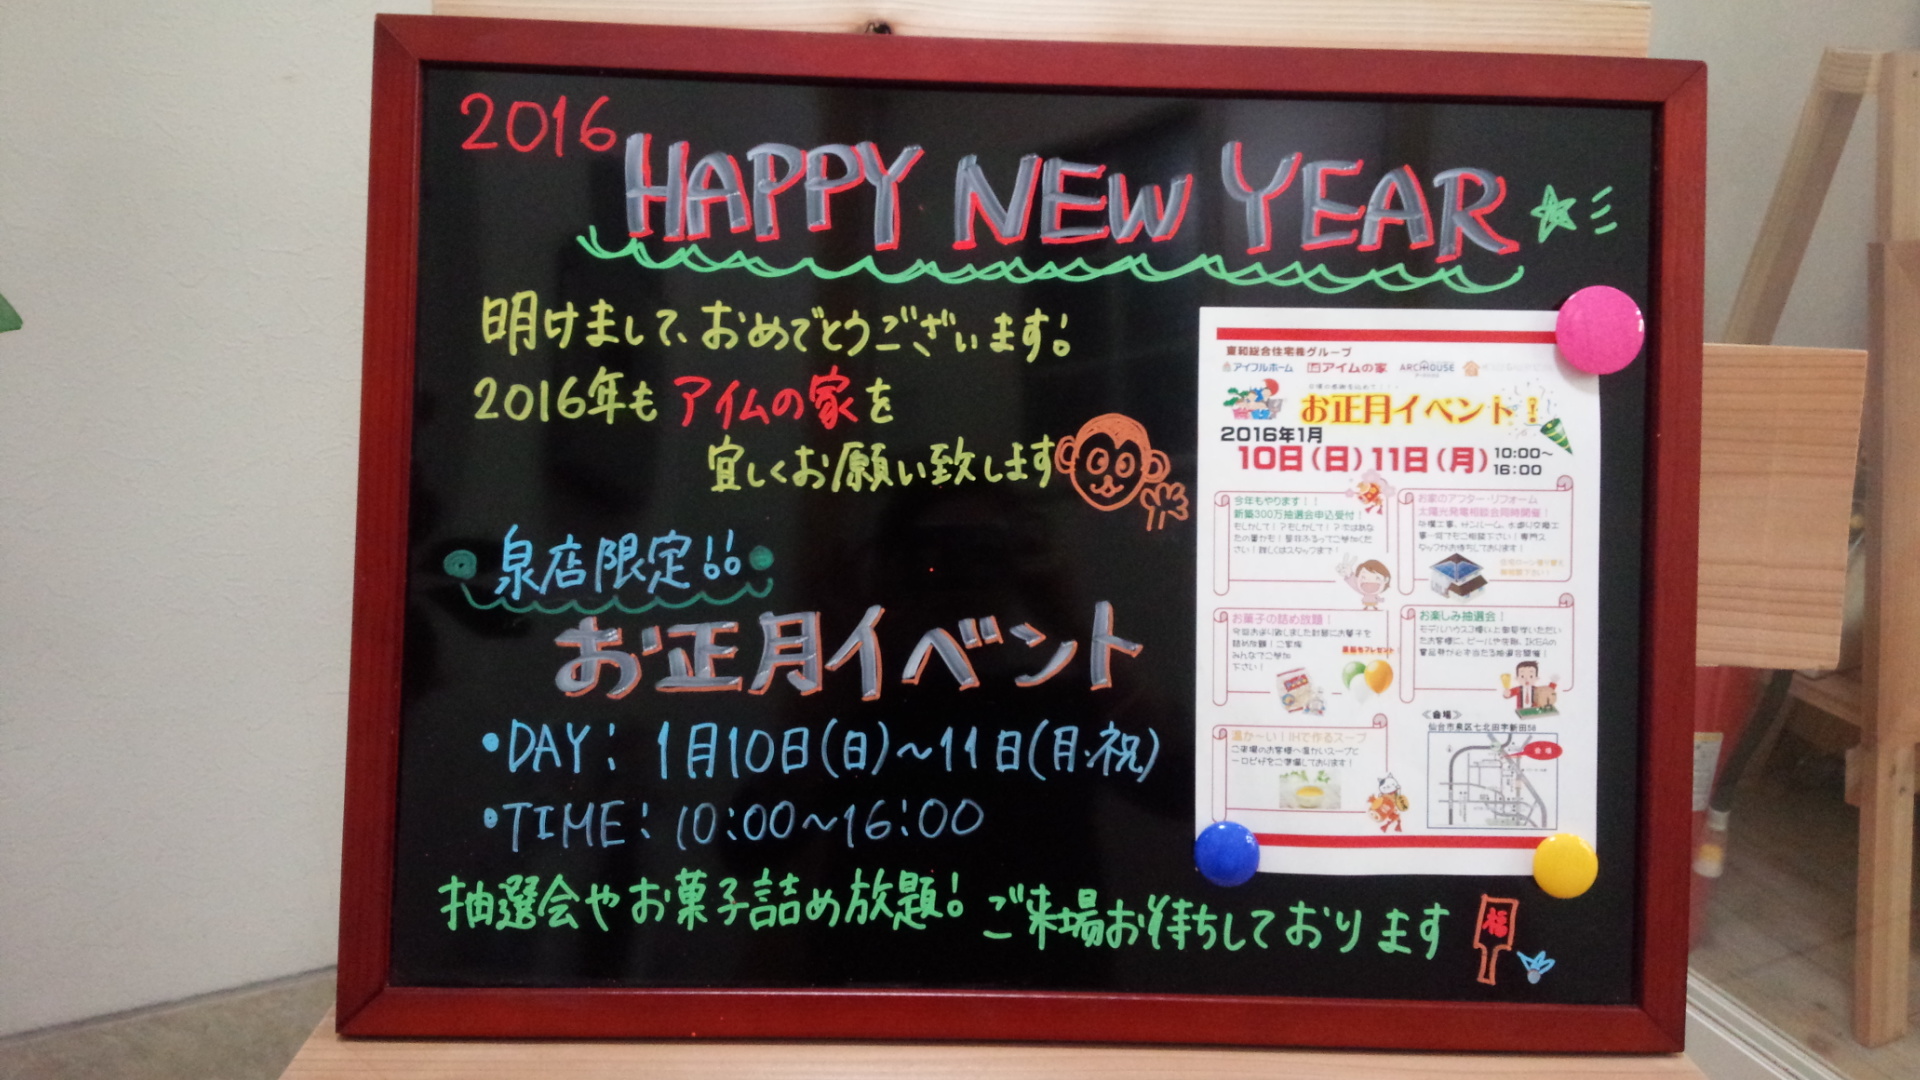 2016
HAPPY NEW YEAR
明けまして、おめでとうございます!
2016年も アイムの家を
宜しくお願い致します
泉店限定!!
お正月イベント
・DAY: 1月10日(日)~11日(月・祝)
・TIME: 10:00~16:00
抽選会やお菓子詰め放題! ご来場お待ちしております
福
東和総合住宅㈱グループ
アイフルホーム アイムの家 ARCHOUSE
お正月イベント
2016年1月
10日(日)11日(月) 10:00~
16:00
今年もやります!!
新築300万抽選会申込受付!
お家のアフター・リフォーム
太陽光発電相談会同時開催!
お菓子の詰め放題!
みんなでご参加
下さい!
お楽しみ抽選会!
温か~い!IHで作るスープ
≪会場≫
仙台市泉区七北田字新田56
会場